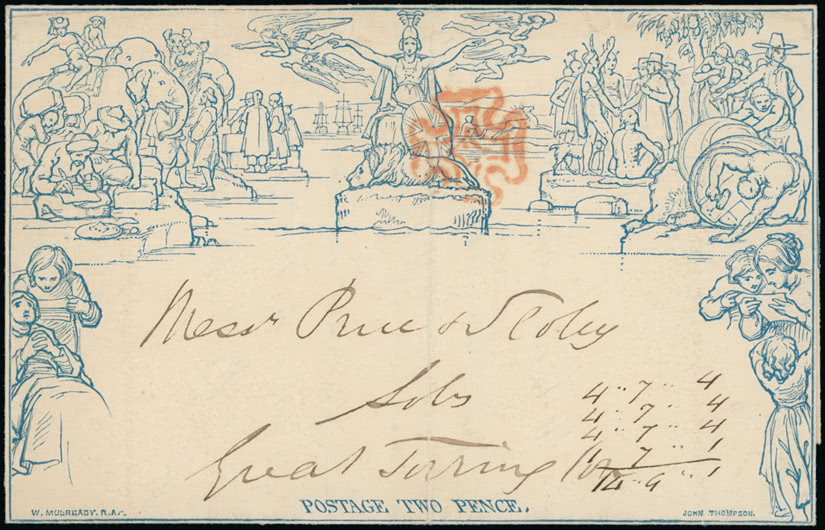 Messrs Price &
Sols
Great Torrington
4 " 7 " 4
4 " 7 " 4
4 " 7 " 4
1 " 7 " 1
14 " 9 " 1
POSTAGE TWO PENCE.
W. MULREADY. R.A.
JOHN THOMPSON.